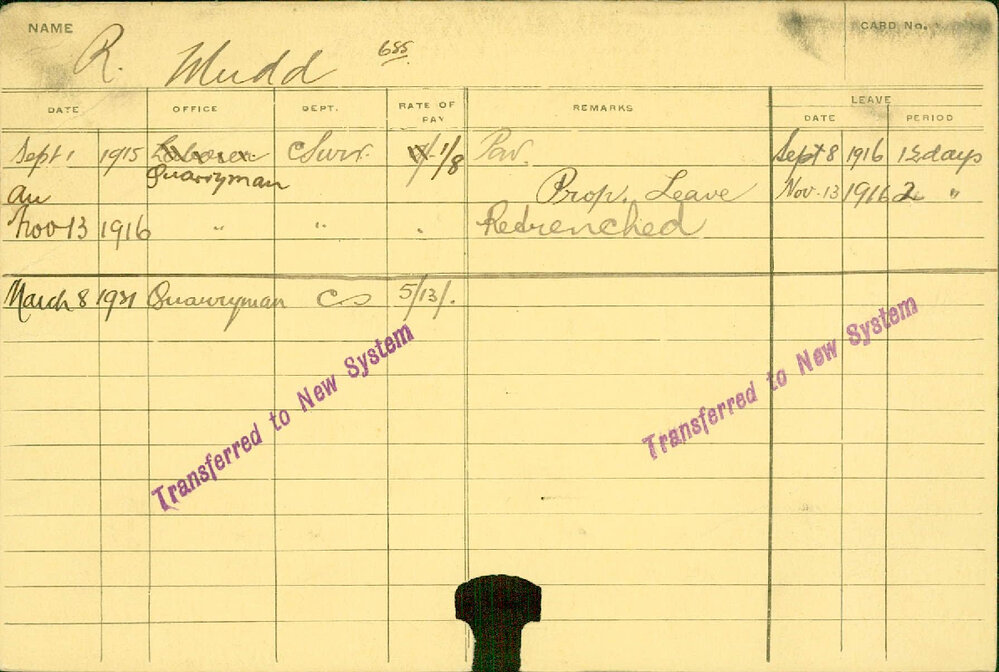 NAME R. Mudd 685 CARD No.
DATE OFFICE DEPT. RATE OF PAY REMARKS LEAVE DATE PERIOD
Sept 1 1915 Laborer 1/8 Sept 8 1916 1½ days
Quarryman
Prop. Leave Nov. 13 1916 2 "
Nov 13 1916 " " " Redrenched
March 8 1921 Quarryman CS 5/13/.
Transferred to New System
Transferred to New System